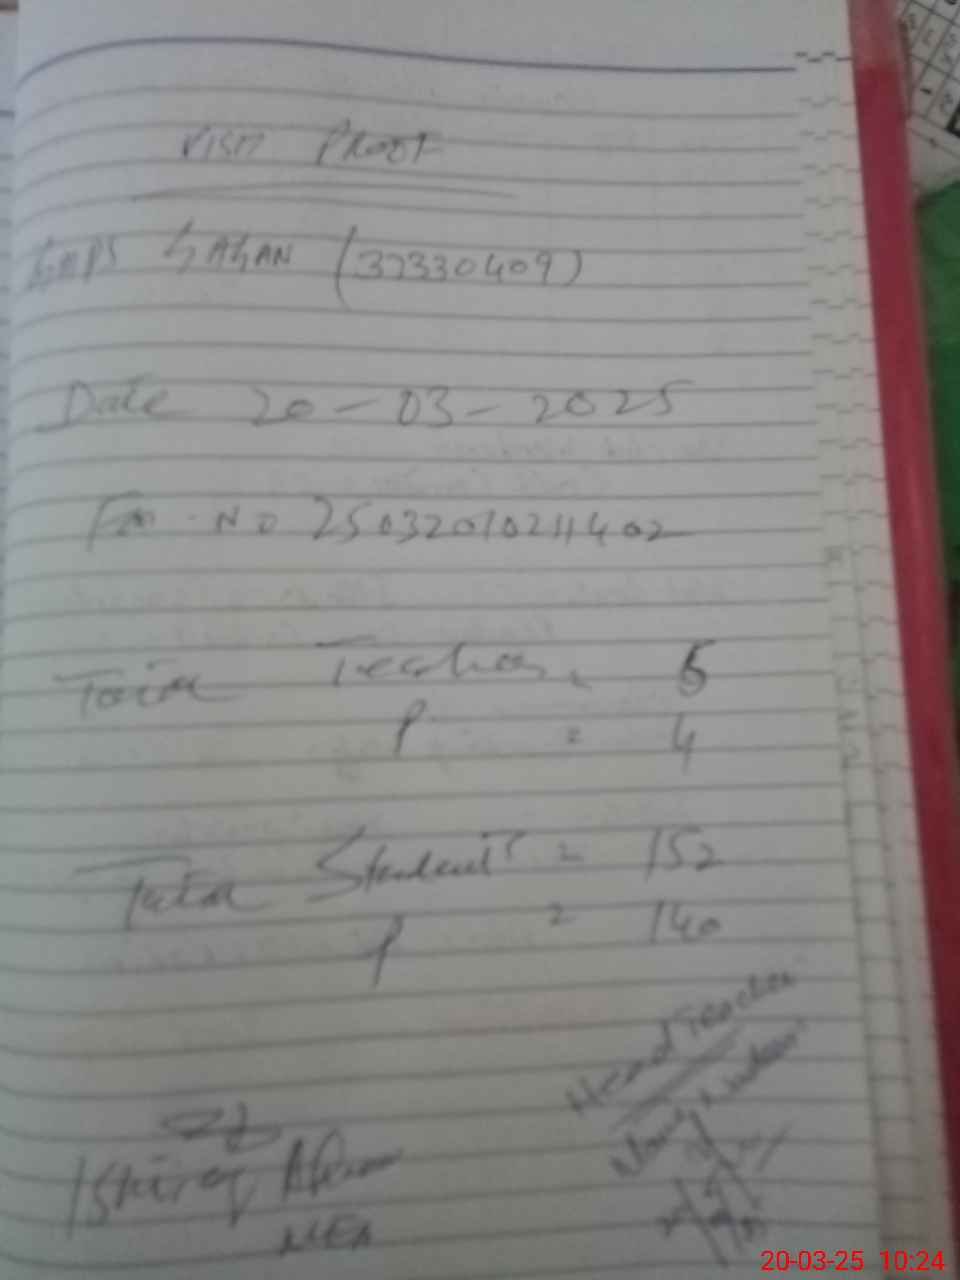 VISIT PROOF
GMPS GAGAN (37330409)
Date 20-03-2025
No 25032010211402
Total Teachers 5
P = 4
Total Students = 152
P = 140
Head Teacher
Ishtiaq Ahmad
MEA
20-03-25 10:24